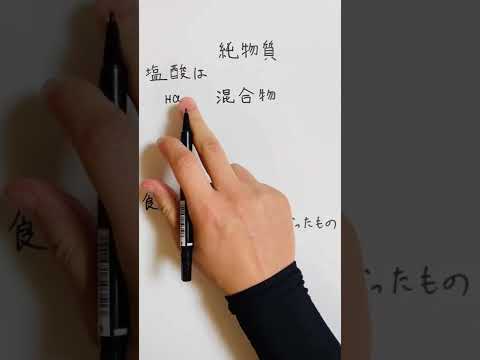 純物質
塩酸は
HCl 混合物
食
ったもの